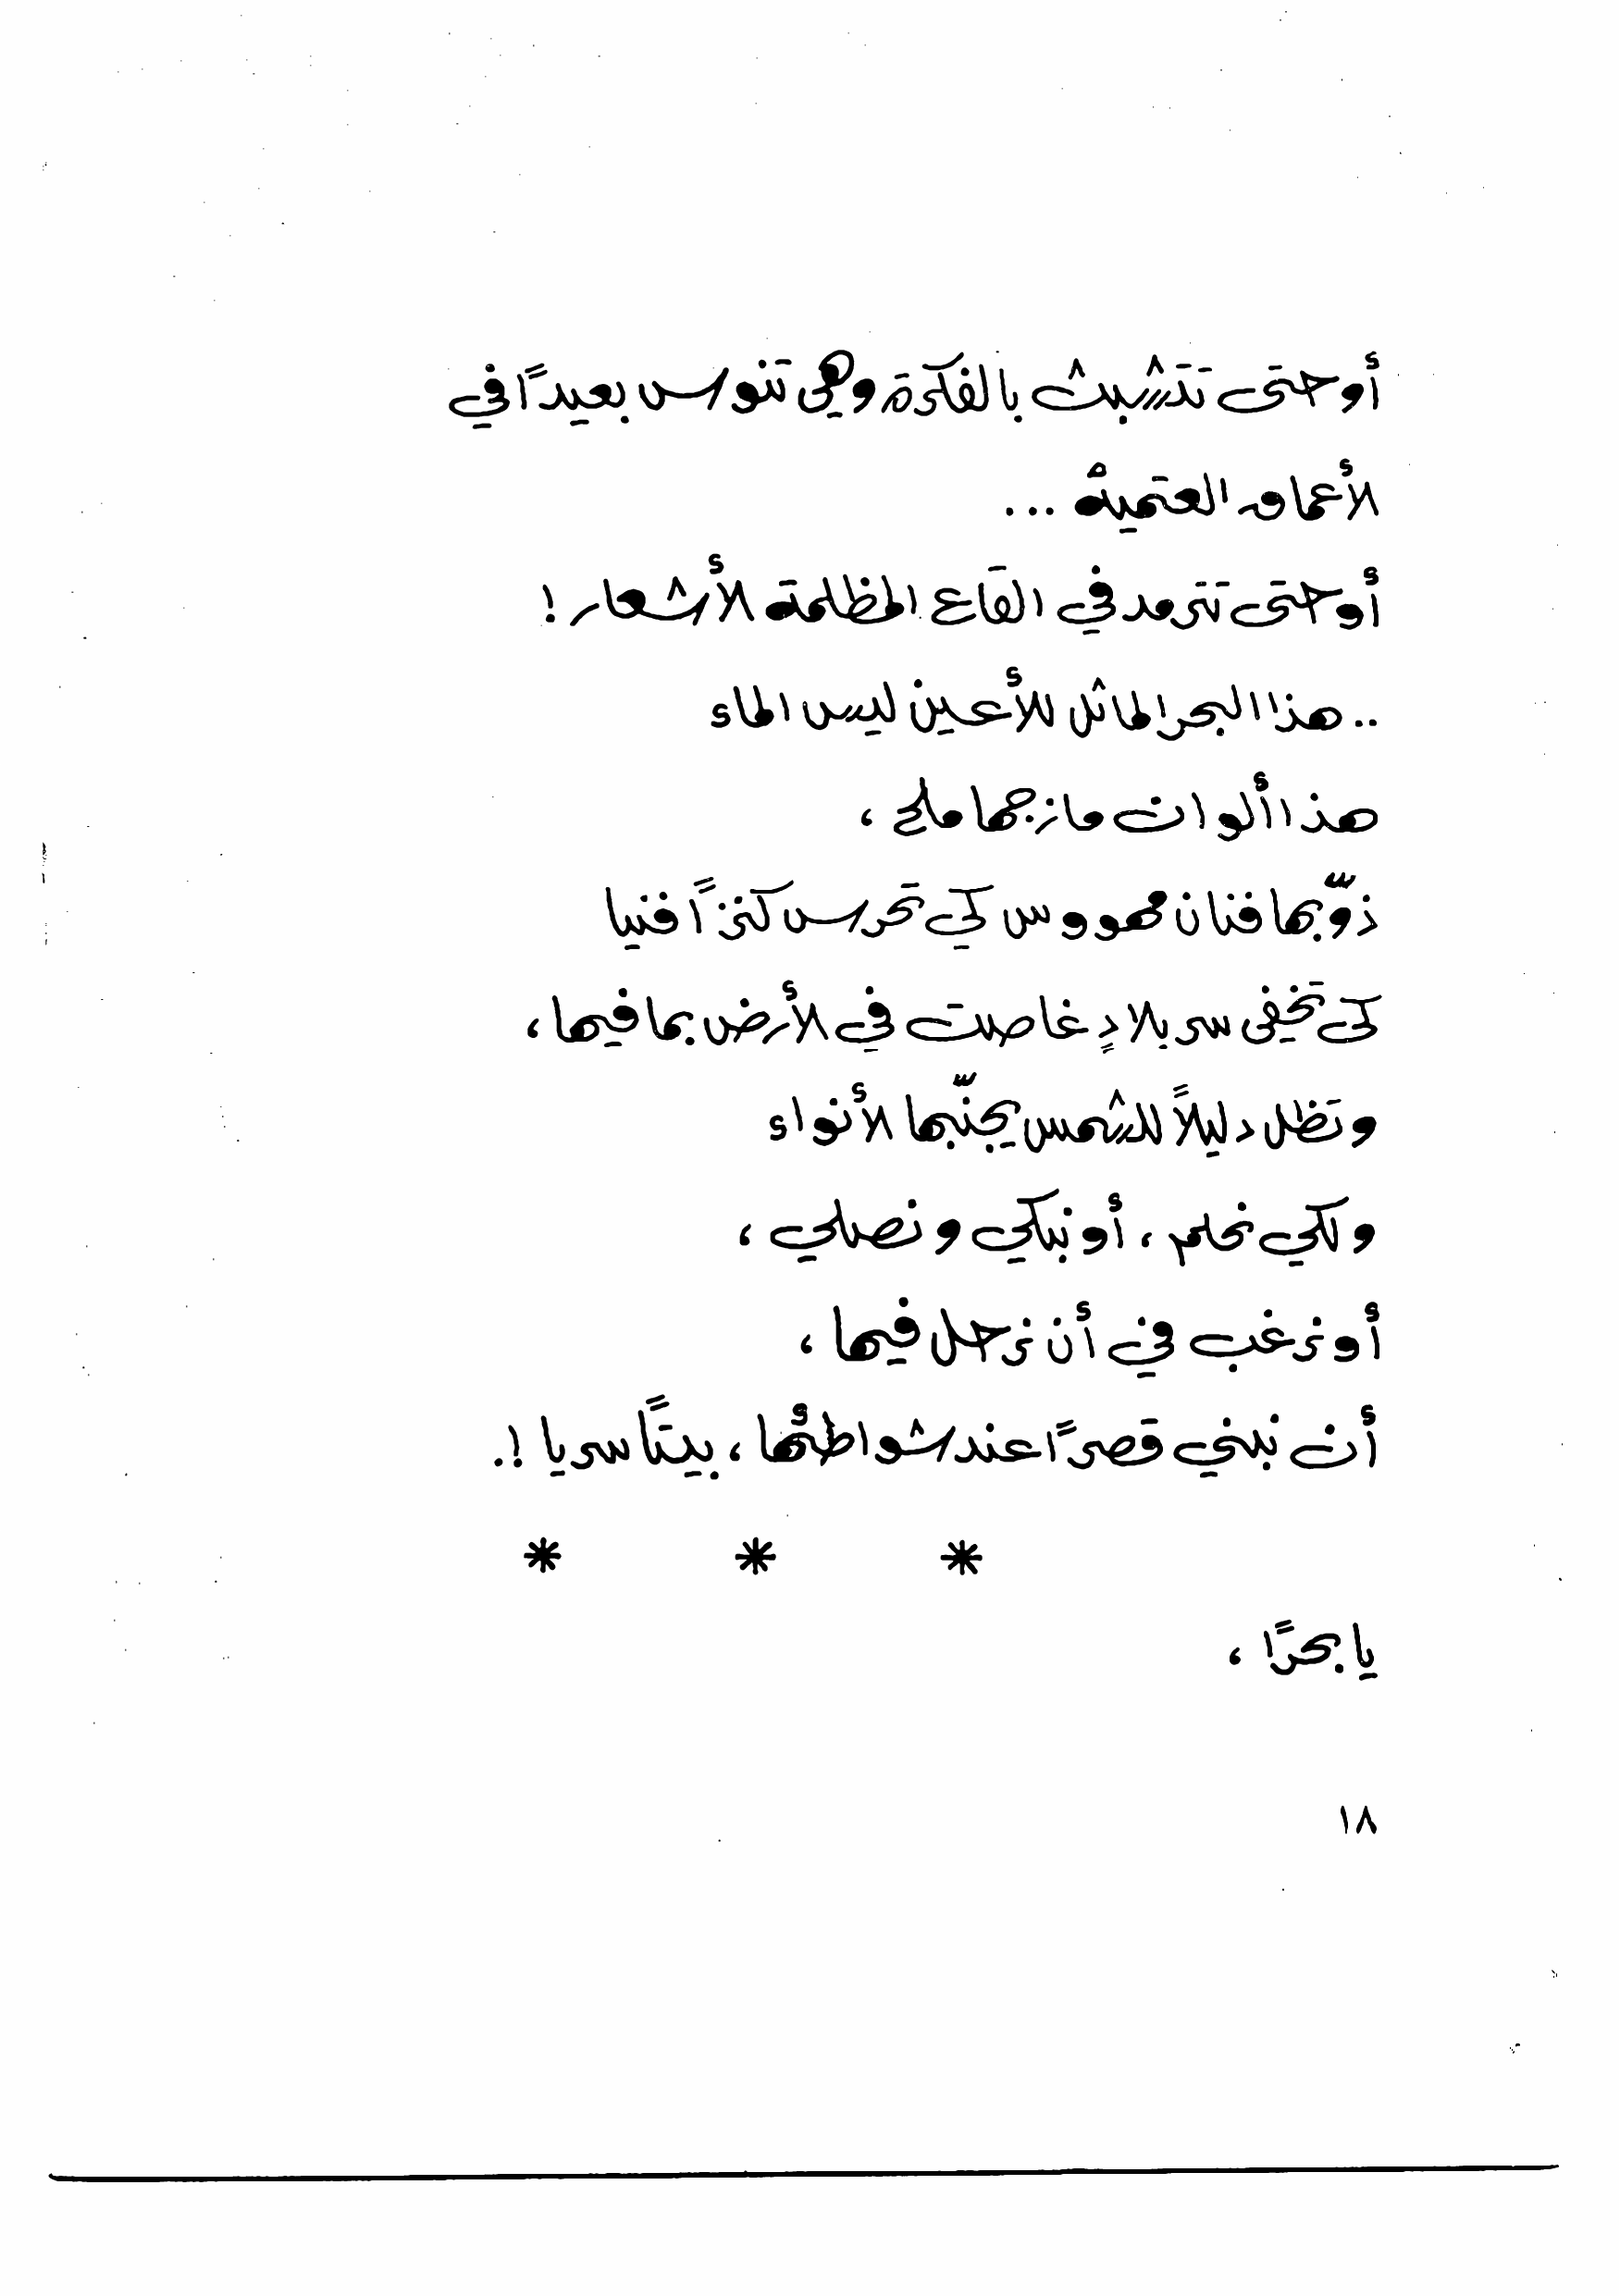 أوحتى تتشبث بالفكرة وهى تنوس بعيدًا في
الأعماق العتمية ...
أوحتى تترمد في القاع المظلمة الأشعار !
.. هذا البحر الماثل للأعين ليس الماء
هذا ألوان مازجها ملح ،
ذوّبها فنان مهووس كي تحرس كنزاً فنيا
كى تخفى سر بلادٍ غاصت في الأرض بما فيها ،
وتظل دليلاً للشمس يجنّبها الأنواء
ولكي نحلم ، أو نبكي ونصلي ،
أو نرغب في أن نرحل فيها ،
أن نبني قصرًا عند شواطئها ، بيتًا سريا !.
* * *
يا بحرًا ،
١٨